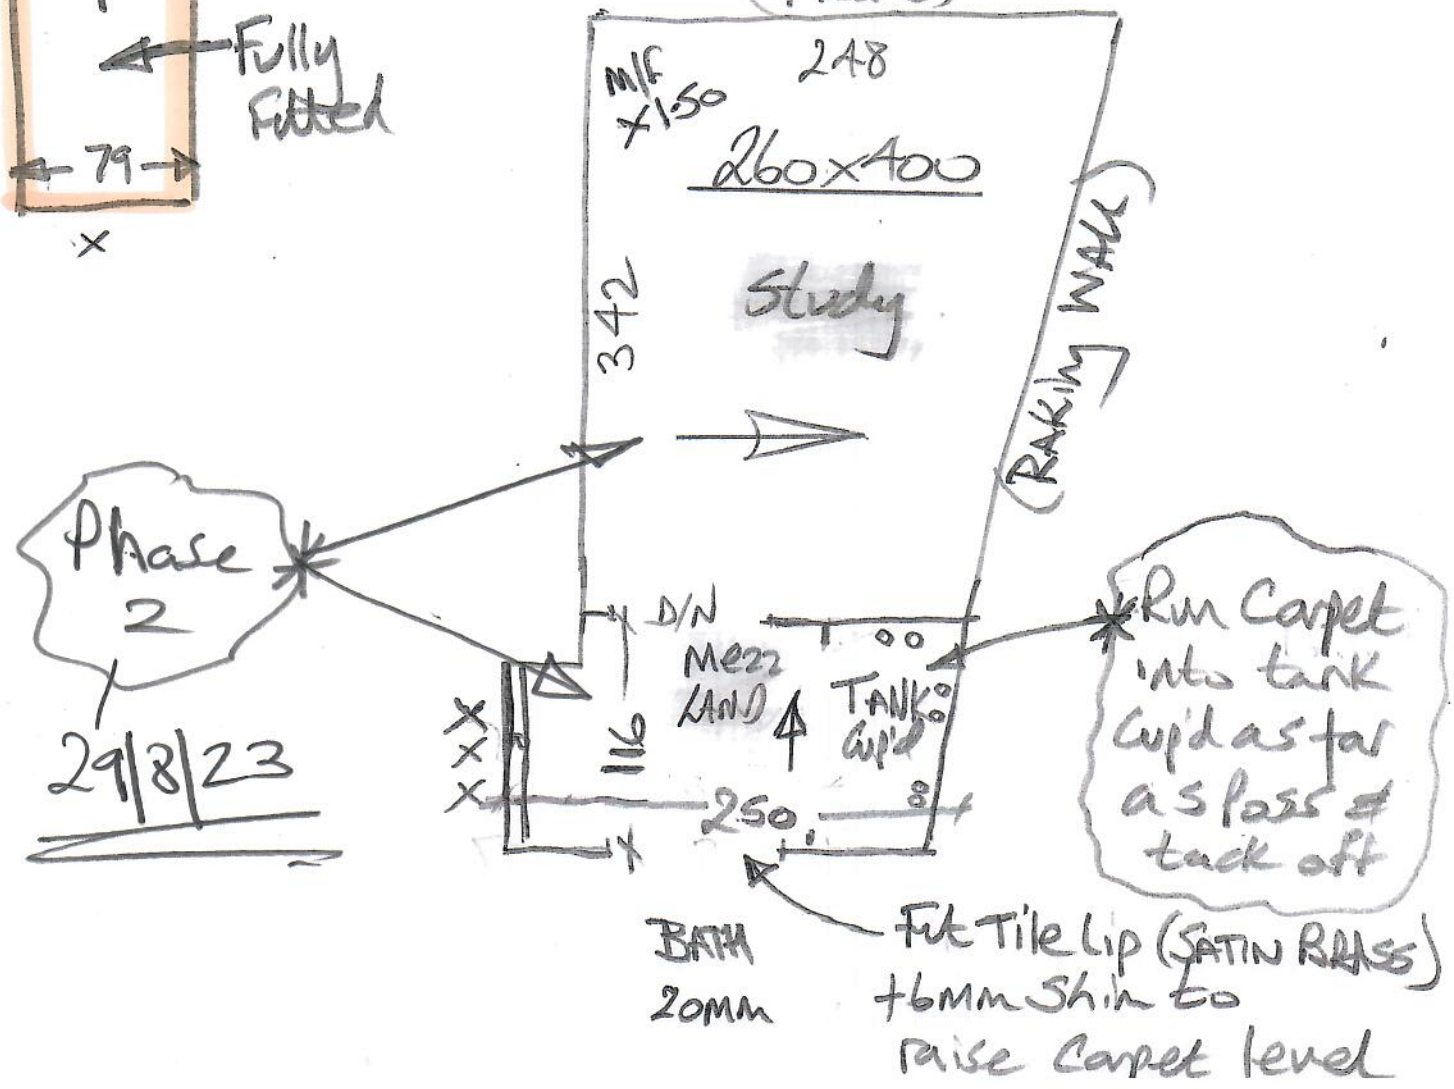 Fully
Fitted
79
x
248
M/F
x1.50
260x400
Study
342
(RAKING WALL)
Phase
2
29/8/23
D/N
Mezz
LAND
TANK
Cup'd
116
XXX
250
Run Carpet
into tank
Cup'd as far
as poss &
tack off
BATH
20mm
Fit Tile Lip (SATIN BRASS)
+6mm Shim to
raise Carpet level